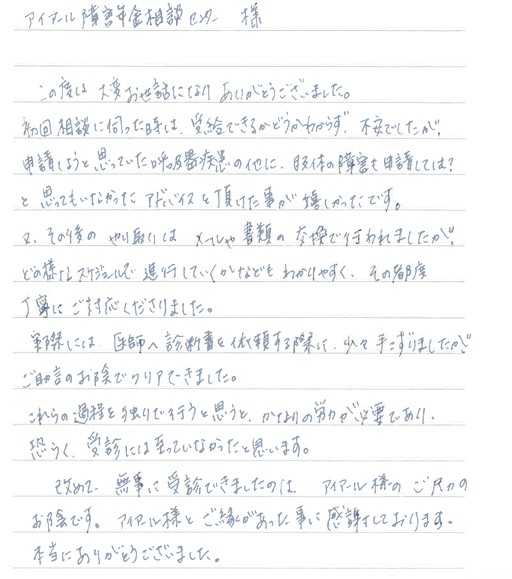 アイアール障害年金相談センター 様
この度は大変お世話になりありがとうございました。
初回相談に伺った時は、受給できるかどうかわからず、不安でしたが、
申請しようと思っていた呼吸器疾患の他に、肢体の障害も申請しては?
と思ってもいなかったアドバイスを頂けた事が嬉しかったです。
又、その後のやり取りはメールや書類の交換で行われましたが、
どの様なスケジュールで進行していくかなどもわかりやすく、その都度
丁寧にご対応くださりました。
実際には、医師へ診断書を依頼する際に、少々手こずりましたが、
ご助言のお陰でクリアできました。
これらの過程を独りで行うと思うと、かなりの労力が必要であり、
恐らく、受診には至っていなかったと思います。
改めて、無事に受診できましたのは、アイアール様のご尽力の
お陰です。アイアール様とご縁があった事に感謝しております。
本当にありがとうございました。